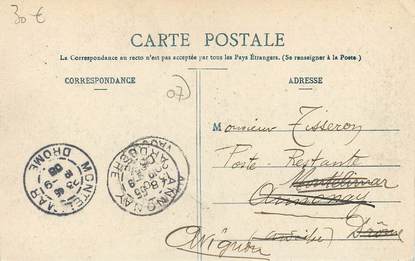 30 €
CARTE POSTALE
La Correspondance au recto n'est pas acceptée par tous les Pays Étrangers. (Se renseigner à la Poste.)
CORRESPONDANCE
ADRESSE
07
Monsieur Tisseron
Poste Restante
Montélimar
Annonay
Avignon
Drôme
MONTELIMAR
DROME
ANNONAY
ARDECHE